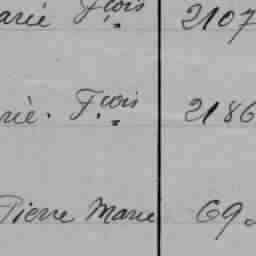 arie Fçois 2107
rie. Fçois 2186
Pierre Marie 69